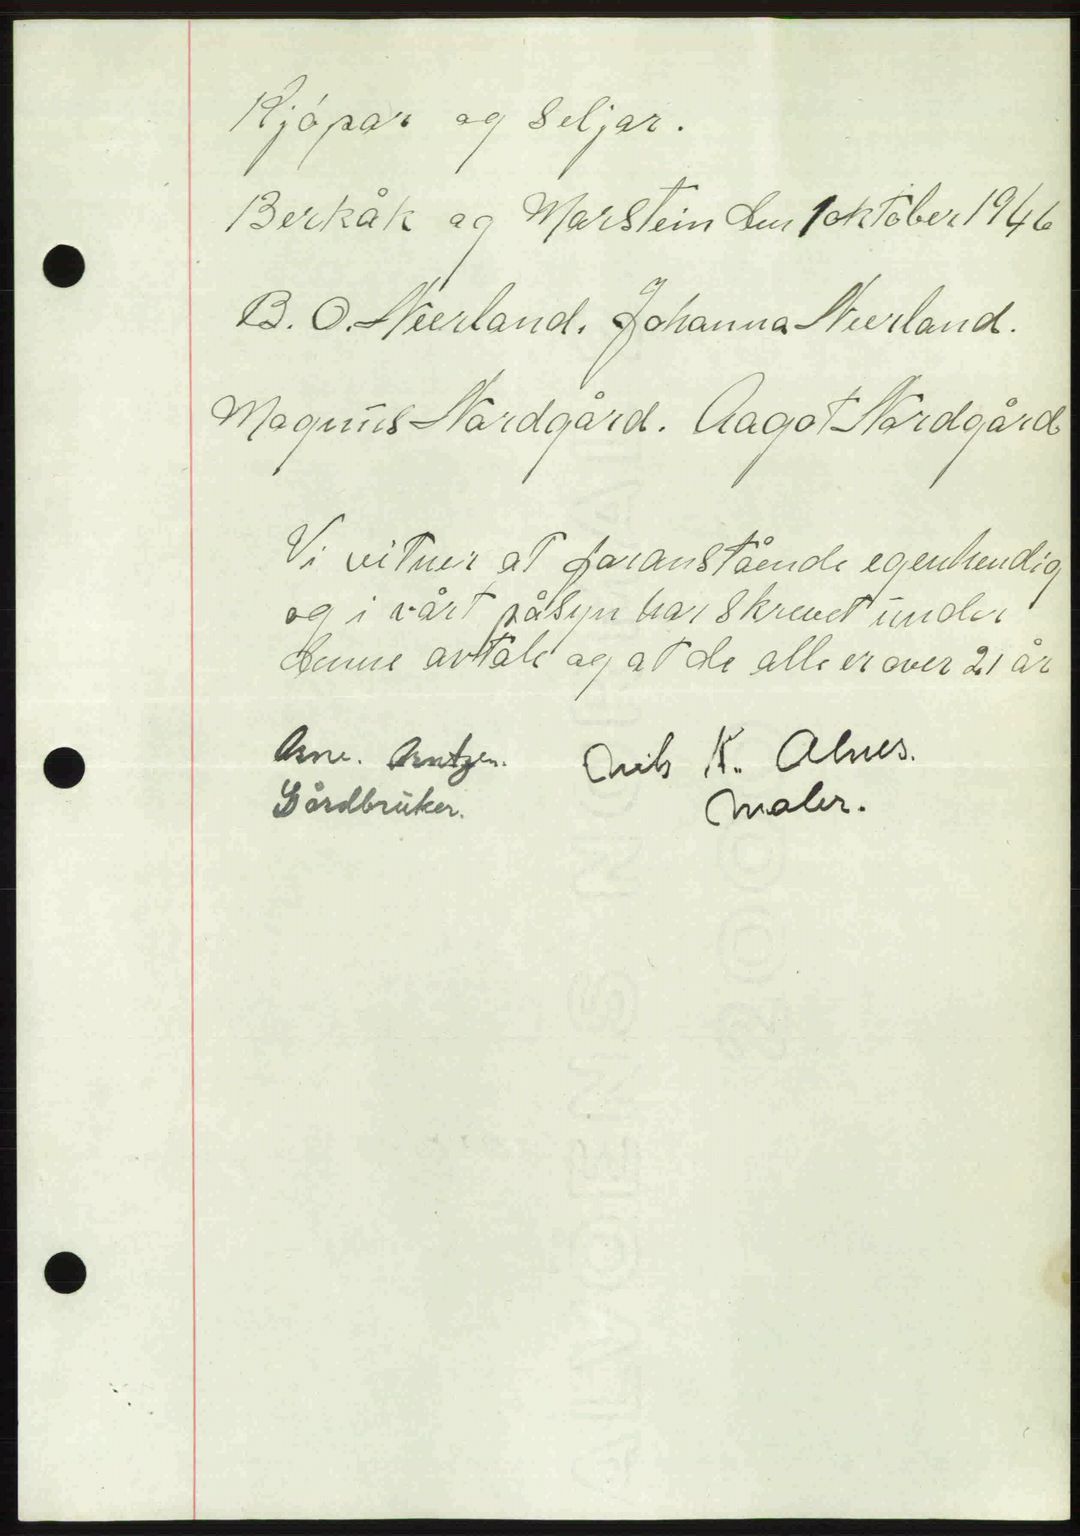 Kjópar og Seljar.
Berkåk og Marstein den 1 oktober 1946
B. O. Neerland. Johanna Neerland.
Magnus Nordgård. Aagot Nordgård
Vi vitner at foranstående egenhendig
og i vårt påsyn har skrevet under
denne avtale og at de alle er over 21 år
Arne. Arntzen. Nils K. Alnes.
Gårdbruker. Maler.
ALVØENS NORMAL
2 00